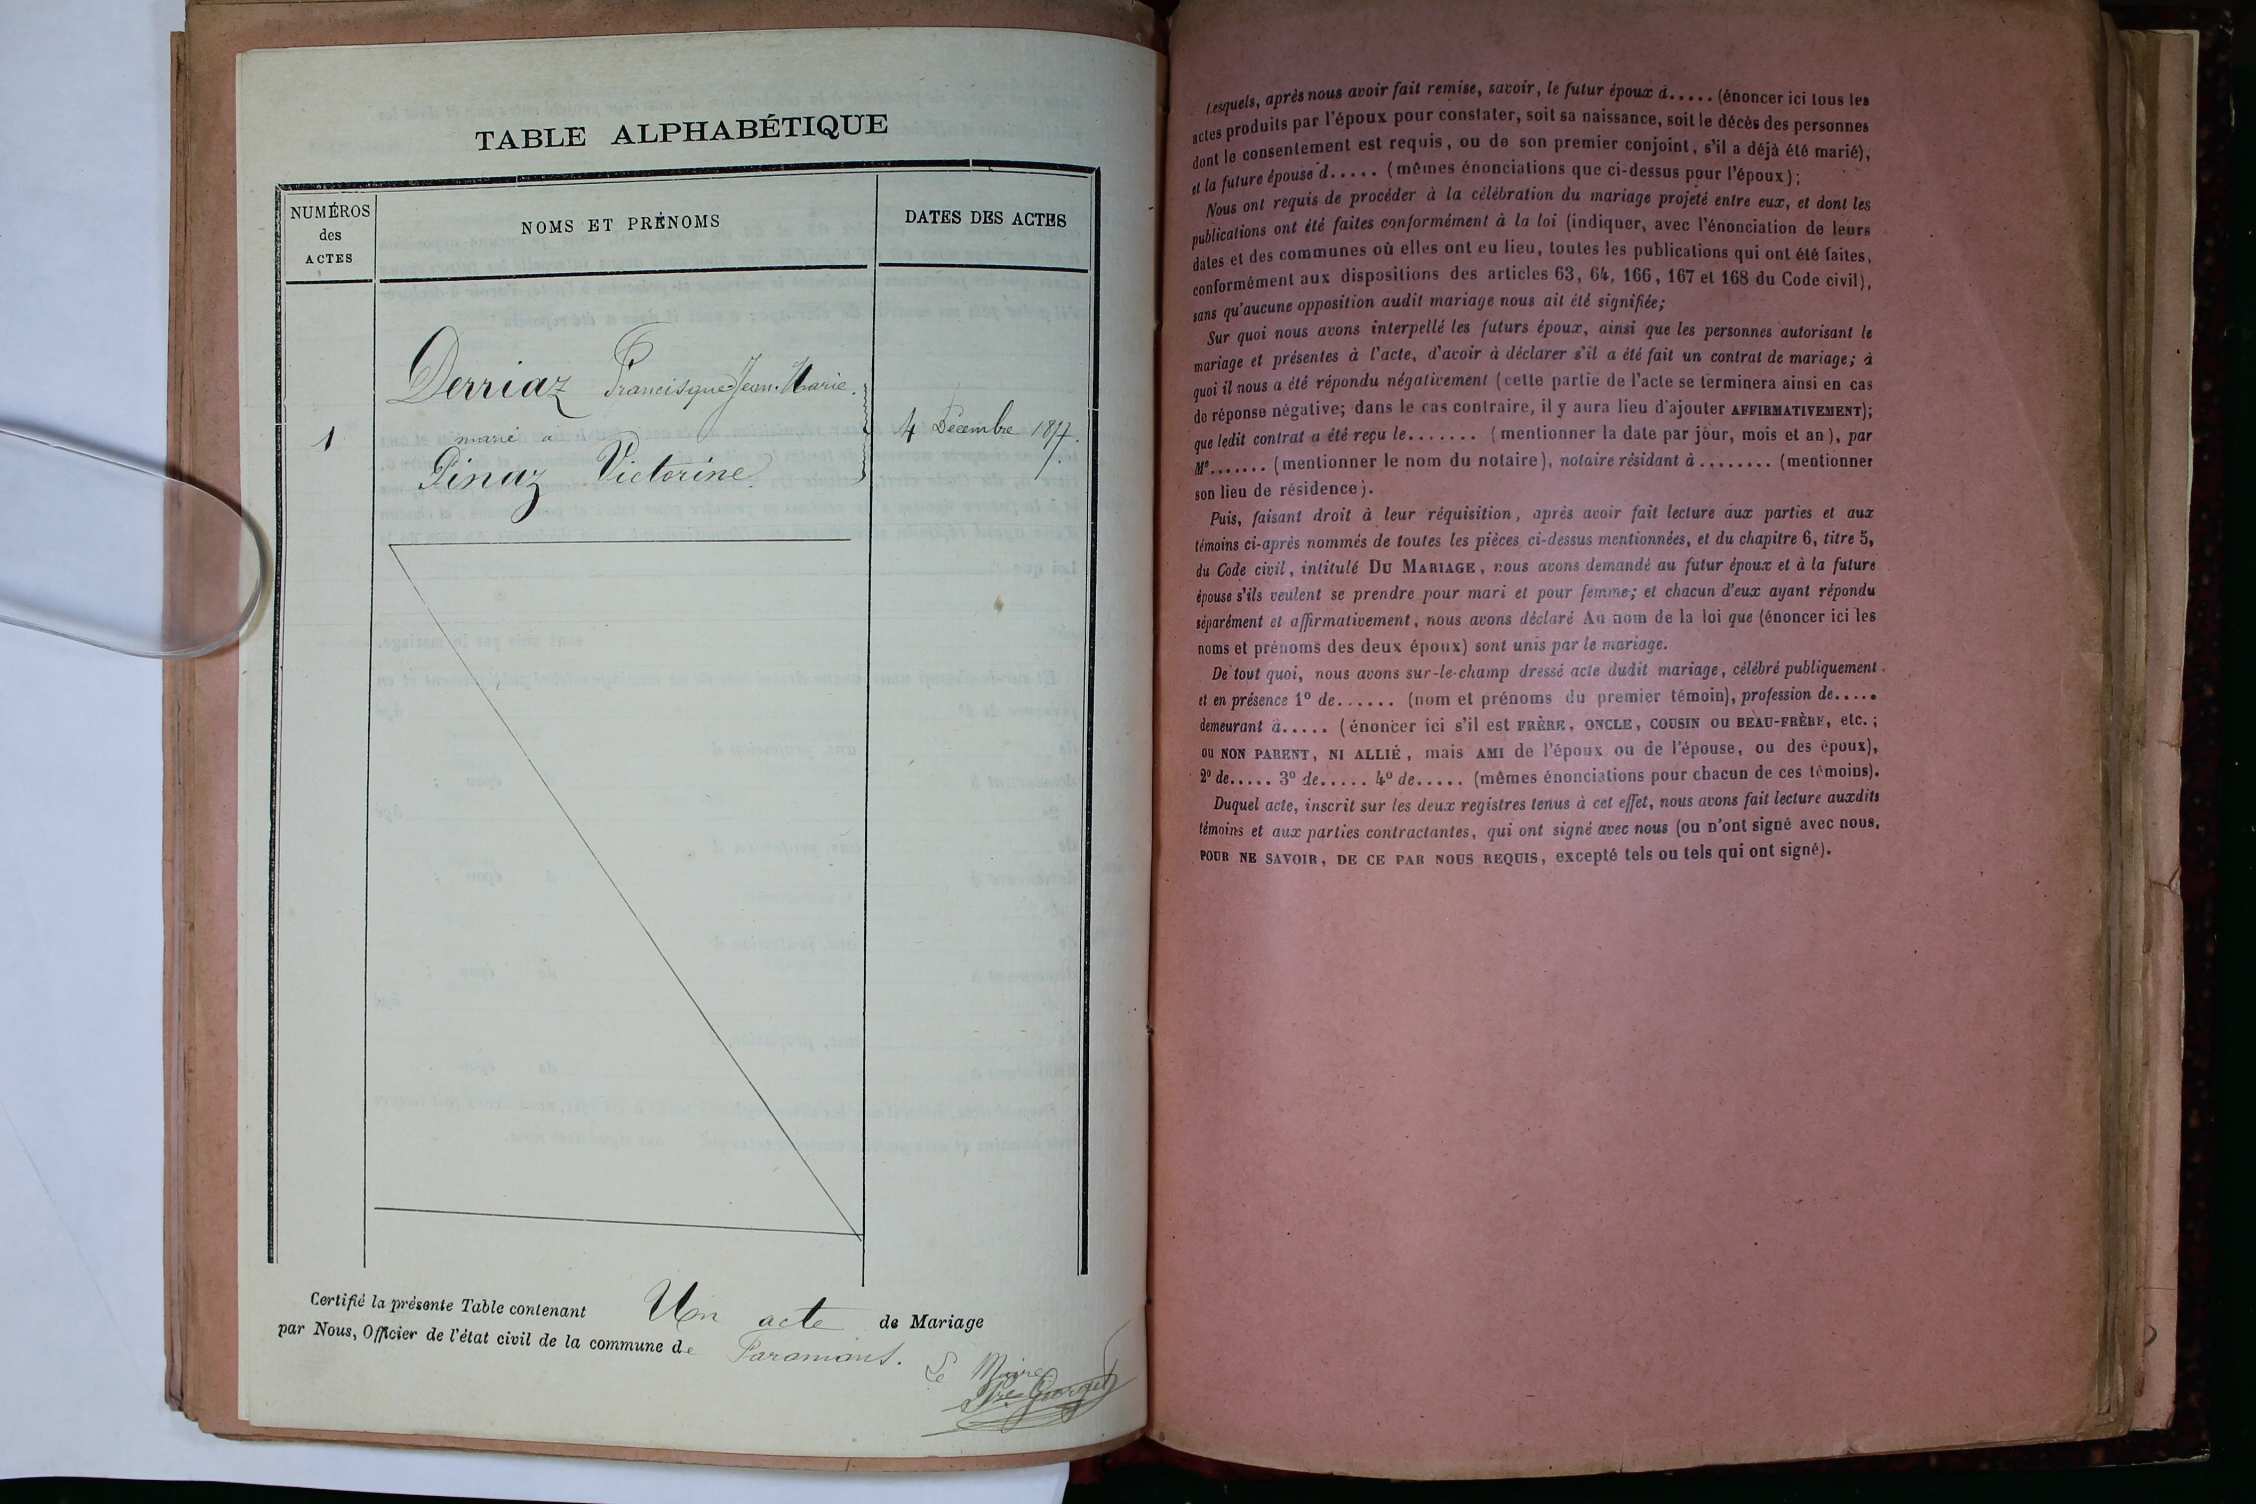 TABLE ALPHABÉTIQUE
NUMÉROS
des
ACTES
NOMS ET PRÉNOMS
DATES DES ACTES
Derriaz Francisque-Jean-Marie.
1
marié à
4 Décembre 1877.
Pinaz Victorine
Certifié la présente Table contenant Un acte de Mariage
par Nous, Officier de l'état civil de la commune de
Le Maire
Lesquels, après nous avoir fait remise, savoir, le futur époux d..... (énoncer ici tous les
actes produits par l'époux pour constater, soit sa naissance, soit le décès des personnes
dont le consentement est requis, ou de son premier conjoint, s'il a déjà été marié),
et la future épouse d..... (mêmes énonciations que ci-dessus pour l'époux);
Nous ont requis de procéder à la célébration du mariage projeté entre eux, et dont les
publications ont été faites conformément à la loi (indiquer, avec l'énonciation de leurs
dates et des communes où elles ont eu lieu, toutes les publications qui ont été faites,
conformément aux dispositions des articles 63, 64, 166, 167 et 168 du Code civil),
sans qu'aucune opposition audit mariage nous ait été signifiée;
Sur quoi nous avons interpellé les futurs époux, ainsi que les personnes autorisant le
mariage et présentes à l'acte, d'avoir à déclarer s'il a été fait un contrat de mariage; à
quoi il nous a été répondu négativement (cette partie de l'acte se terminera ainsi en cas
de réponse négative; dans le cas contraire, il y aura lieu d'ajouter AFFIRMATIVEMENT);
que ledit contrat a été reçu le....... (mentionner la date par jour, mois et an), par
Me....... (mentionner le nom du notaire), notaire résidant à ........ (mentionner
son lieu de résidence).
Puis, faisant droit à leur réquisition, après avoir fait lecture aux parties et aux
témoins ci-après nommés de toutes les pièces ci-dessus mentionnées, et du chapitre 6, titre 5,
du Code civil, intitulé DU MARIAGE, nous avons demandé au futur époux et à la future
épouse s'ils veulent se prendre pour mari et pour femme; et chacun d'eux ayant répondu
séparément et affirmativement, nous avons déclaré Au nom de la loi que (énoncer ici les
noms et prénoms des deux époux) sont unis par le mariage.
De tout quoi, nous avons sur-le-champ dressé acte dudit mariage, célébré publiquement
et en présence 1o de...... (nom et prénoms du premier témoin), profession de.....
demeurant à..... (énoncer ici s'il est FRÈRE, ONCLE, COUSIN OU BEAU-FRÈRE, etc.;
OU NON PARENT, NI ALLIÉ, mais AMI de l'époux ou de l'épouse, ou des époux),
2o de..... 3o de..... 4o de..... (mêmes énonciations pour chacun de ces témoins).
Duquel acte, inscrit sur les deux registres tenus à cet effet, nous avons fait lecture auxdits
témoins et aux parties contractantes, qui ont signé avec nous (ou n'ont signé avec nous,
POUR NE SAVOIR, DE CE PAR NOUS REQUIS, excepté tels ou tels qui ont signé).